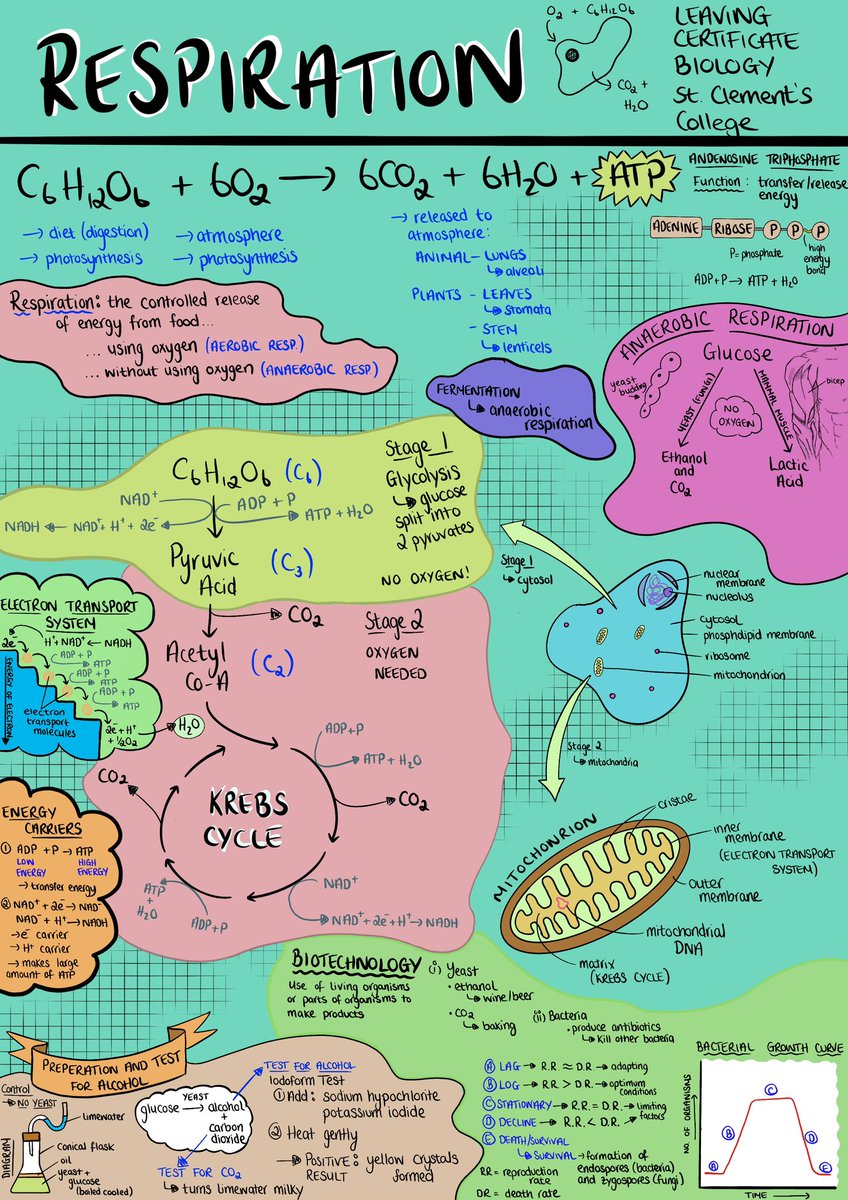 RESPIRATION
O₂ + C₆H₁₂O₆
CO₂ +
H₂O
LEAVING
CERTIFICATE
BIOLOGY
St. Clement's
College
C₆H₁₂O₆ + 6O₂ → 6CO₂ + 6H₂O + ATP
→ diet (digestion)
→ photosynthesis
→ atmosphere
→ photosynthesis
→ released to
atmosphere:
ANIMAL - LUNGS
↳ alveoli
PLANTS - LEAVES
↳ stomata
- STEM
↳ lenticels
ANDENOSINE TRIPHOSPHATE
Function: transfer/release
energy
ADENINE RIBOSE P P P
P = phosphate
high
energy
bond
ADP+P → ATP + H₂O
Respiration: the controlled release
of energy from food...
... using oxygen (AEROBIC RESP.)
... without using oxygen (ANAEROBIC RESP)
FERMENTATION
↳ anaerobic
respiration
ANAEROBIC RESPIRATION
Glucose
yeast
budding
YEAST (FUNGI)
NO
OXYGEN
MAMMAL MUSCLE
bicep
Ethanol
and
CO₂
Lactic
Acid
C₆H₁₂O₆ (C₆)
NAD⁺
ADP + P
NADH ← NAD⁺ + H⁺ + 2e⁻
ATP + H₂O
Pyruvic
Acid
(C₃)
Stage 1
Glycolysis
↳ glucose
split into
2 pyruvates
NO OXYGEN!
CO₂
Acetyl
Co-A
(C₂)
Stage 2
OXYGEN
NEEDED
ADP+P
ATP + H₂O
CO₂
CO₂
KREBS
CYCLE
NAD⁺
NAD⁺ + 2e⁻ + H⁺ → NADH
ATP
+
H₂O
ADP+P
ELECTRON TRANSPORT
SYSTEM
2e⁻
H⁺+NAD⁺ ← NADH
ADP + P
ATP
ADP + P
ATP
ADP + P
ATP
ENERGY OF ELECTRON
electron
transport
molecules
2e⁻ + H⁺
+ ½O₂
H₂O
ENERGY
CARRIERS
① ADP + P → ATP
LOW
ENERGY
HIGH
ENERGY
→ transfer energy
② NAD⁺ + 2e⁻ → NAD⁻
NAD⁻ + H⁺ → NADH
→ e⁻ carrier
→ H⁺ carrier
→ makes large
amount of ATP
Stage 1
↳ cytosol
nuclear
membrane
nucleolus
cytosol
phosphdipid membrane
ribosome
mitochondrion
Stage 2
↳ mitochondria
MITOCHONRION
cristae
inner
membrane
(ELECTRON TRANSPORT
SYSTEM)
outer
membrane
mitochondrial
DNA
matrix
(KREBS CYCLE)
BIOTECHNOLOGY
Use of living organisms
or parts of organisms to
make products
(i) Yeast
• ethanol
↳ wine/beer
• CO₂
↳ baking
(ii) Bacteria
• produce antibiotics
↳ kill other bacteria
PREPERATION AND TEST
FOR ALCOHOL
Control
↳ NO YEAST
limewater
Conical flask
oil
yeast +
glucose
(boiled cooled)
DIAGRAM
YEAST
glucose → alcohol
+
carbon
dioxide
TEST FOR CO₂
↳ turns limewater milky
TEST FOR ALCOHOL
Iodoform Test
① Add: sodium hypochlorite
potassium iodide
② Heat gently
→ POSITIVE: yellow crystals
RESULT formed
Ⓐ LAG → R.R. ≈ D.R. → adapting
Ⓑ LOG → R.R. > D.R. → optimum
conditions
Ⓒ STATIONARY → R.R. = D.R. → limiting
factors
Ⓓ DECLINE → R.R. < D.R.
Ⓔ DEATH/SURVIVAL
↳ SURVIVAL → formation of
endospores (bacteria)
and zygospores (fungi)
RR = reproduction
rate
DR = death rate
BACTERIAL GROWTH CURVE
NO. OF ORGANISMS
A
B
C
D
E
TIME →